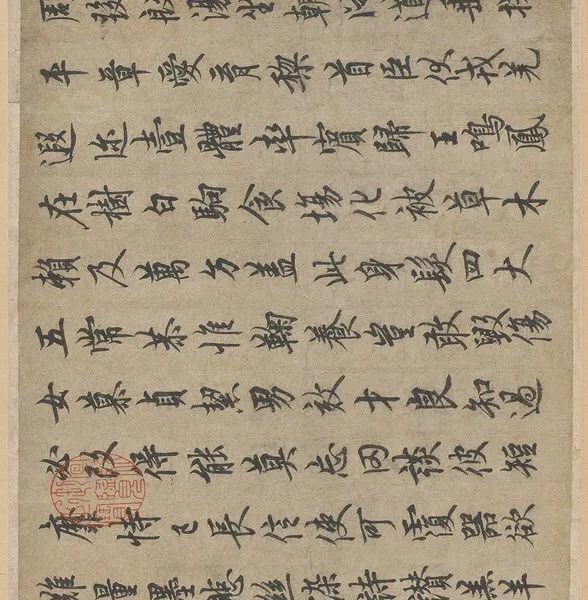 周發殷湯坐朝問道垂拱
平章愛育黎首臣伏戎羌
遐迩壹體率賓歸王鳴鳳
在樹白駒食場化被草木
賴及萬方蓋此身髮四大
五常恭惟鞠養豈敢毀傷
女慕貞絜男效才良知過
必改得能莫忘罔談彼短
靡恃己長信使可覆器欲
難量墨悲絲染詩讚羔羊